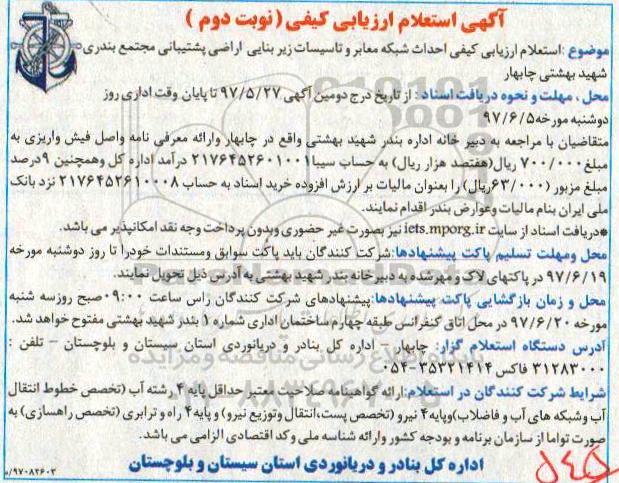 آگهی استعلام ارزیابی کیفی ( نوبت دوم )
موضوع :استعلام ارزیابی کیفی احداث شبکه معابر و تاسیسات زیر بنایی اراضی پشتیبانی مجتمع بندری
شهید بهشتی چابهار
محل ، مهلت و نحوه دریافت اسناد : از تاریخ درج دومین آگهی ۹۷/۵/۲۷ تا پایان وقت اداری روز
دوشنبه مورخه ۹۷/۶/۵
متقاضیان با مراجعه به دبیر خانه اداره بندر شهید بهشتی واقع در چابهار وارائه معرفی نامه واصل فیش واریزی به
مبلغ ۷۰۰/۰۰۰ ریال(هفتصد هزار ریال) به حساب سیبا ۲۱۷۶۴۵۲۶۰۱۰۰۱ درآمد اداره کل وهمچنین ۹درصد
مبلغ مزبور (۶۳/۰۰۰ریال) را بعنوان مالیات بر ارزش افزوده خرید اسناد به حساب ۲۱۷۶۴۵۲۶۱۰۰۰۸ نزد بانک
ملی ایران بنام مالیات وعوارض بندر اقدام نمایند.
*دریافت اسناد از سایت iets.mporg.ir نیز بصورت غیر حضوری وبدون پرداخت وجه نقد امکانپذیر می باشد.
محل ومهلت تسلیم پاکت پیشنهادها:شرکت کنندگان باید پاکت سوابق ومستندات خودرا تا روز دوشنبه مورخه
۹۷/۶/۱۹ در پاکتهای لاک و مهرشده به دبیرخانه بندر شهید بهشتی به آدرس ذیل تحویل نمایند.
محل و زمان بازگشایی پاکت پیشنهادها:پیشنهادهای شرکت کنندگان راس ساعت ۰۹:۰۰صبح روزسه شنبه
مورخه ۹۷/۶/۲۰ در محل اتاق کنفرانس طبقه چهارم ساختمان اداری شماره ۱ بندر شهید بهشتی مفتوح خواهد شد.
آدرس دستگاه استعلام گزار: چابهار – اداره کل بنادر و دریانوردی استان سیستان و بلوچستان – تلفن :
۳۱۲۸۳۰۰۰ فاکس ۳۵۳۲۱۴۱۴-۰۵۴
شرایط شرکت کنندگان در استعلام:ارائه گواهینامه صلاحیت معتبر حداقل پایه ۴ رشته آب (تخصص خطوط انتقال
آب وشبکه های آب و فاضلاب)وپایه ۴ نیرو (تخصص پست،انتقال وتوزیع نیرو) و پایه ۴ راه و ترابری (تخصص راهسازی) به
صورت تواما از سازمان برنامه و بودجه کشور وارائه شناسه ملی وکد اقتصادی الزامی می باشد.
اداره کل بنادر و دریانوردی استان سیستان و بلوچستان